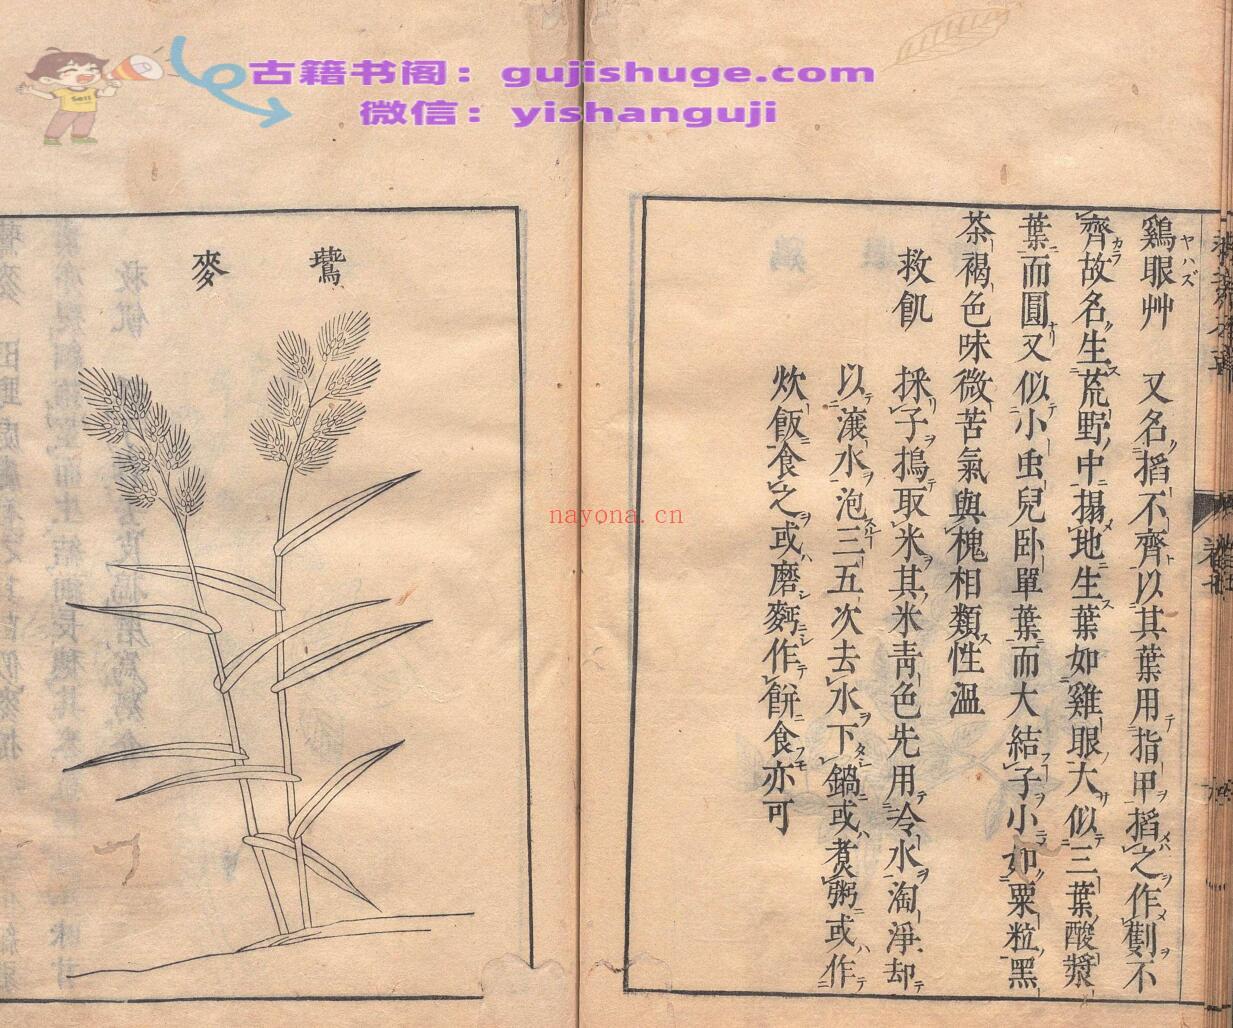 古籍书阁：gujishuge.com
微信：yishanguji
鷄眼艸 又名搯不齊以其葉用指甲搯之作㔢不
齊故名生荒野中搨地生葉如雞眼大似三葉酸漿
葉而圓又似小虫兒卧單葉而大結子小如粟粒黑
茶褐色味微苦氣與槐相類性温
救飢 採子搗取米其米青色先用冷水淘淨却
以滾水泡三五次去水下鍋或煑粥或作
炊飯食之或磨麪作餅食亦可
nayona.cn
麥